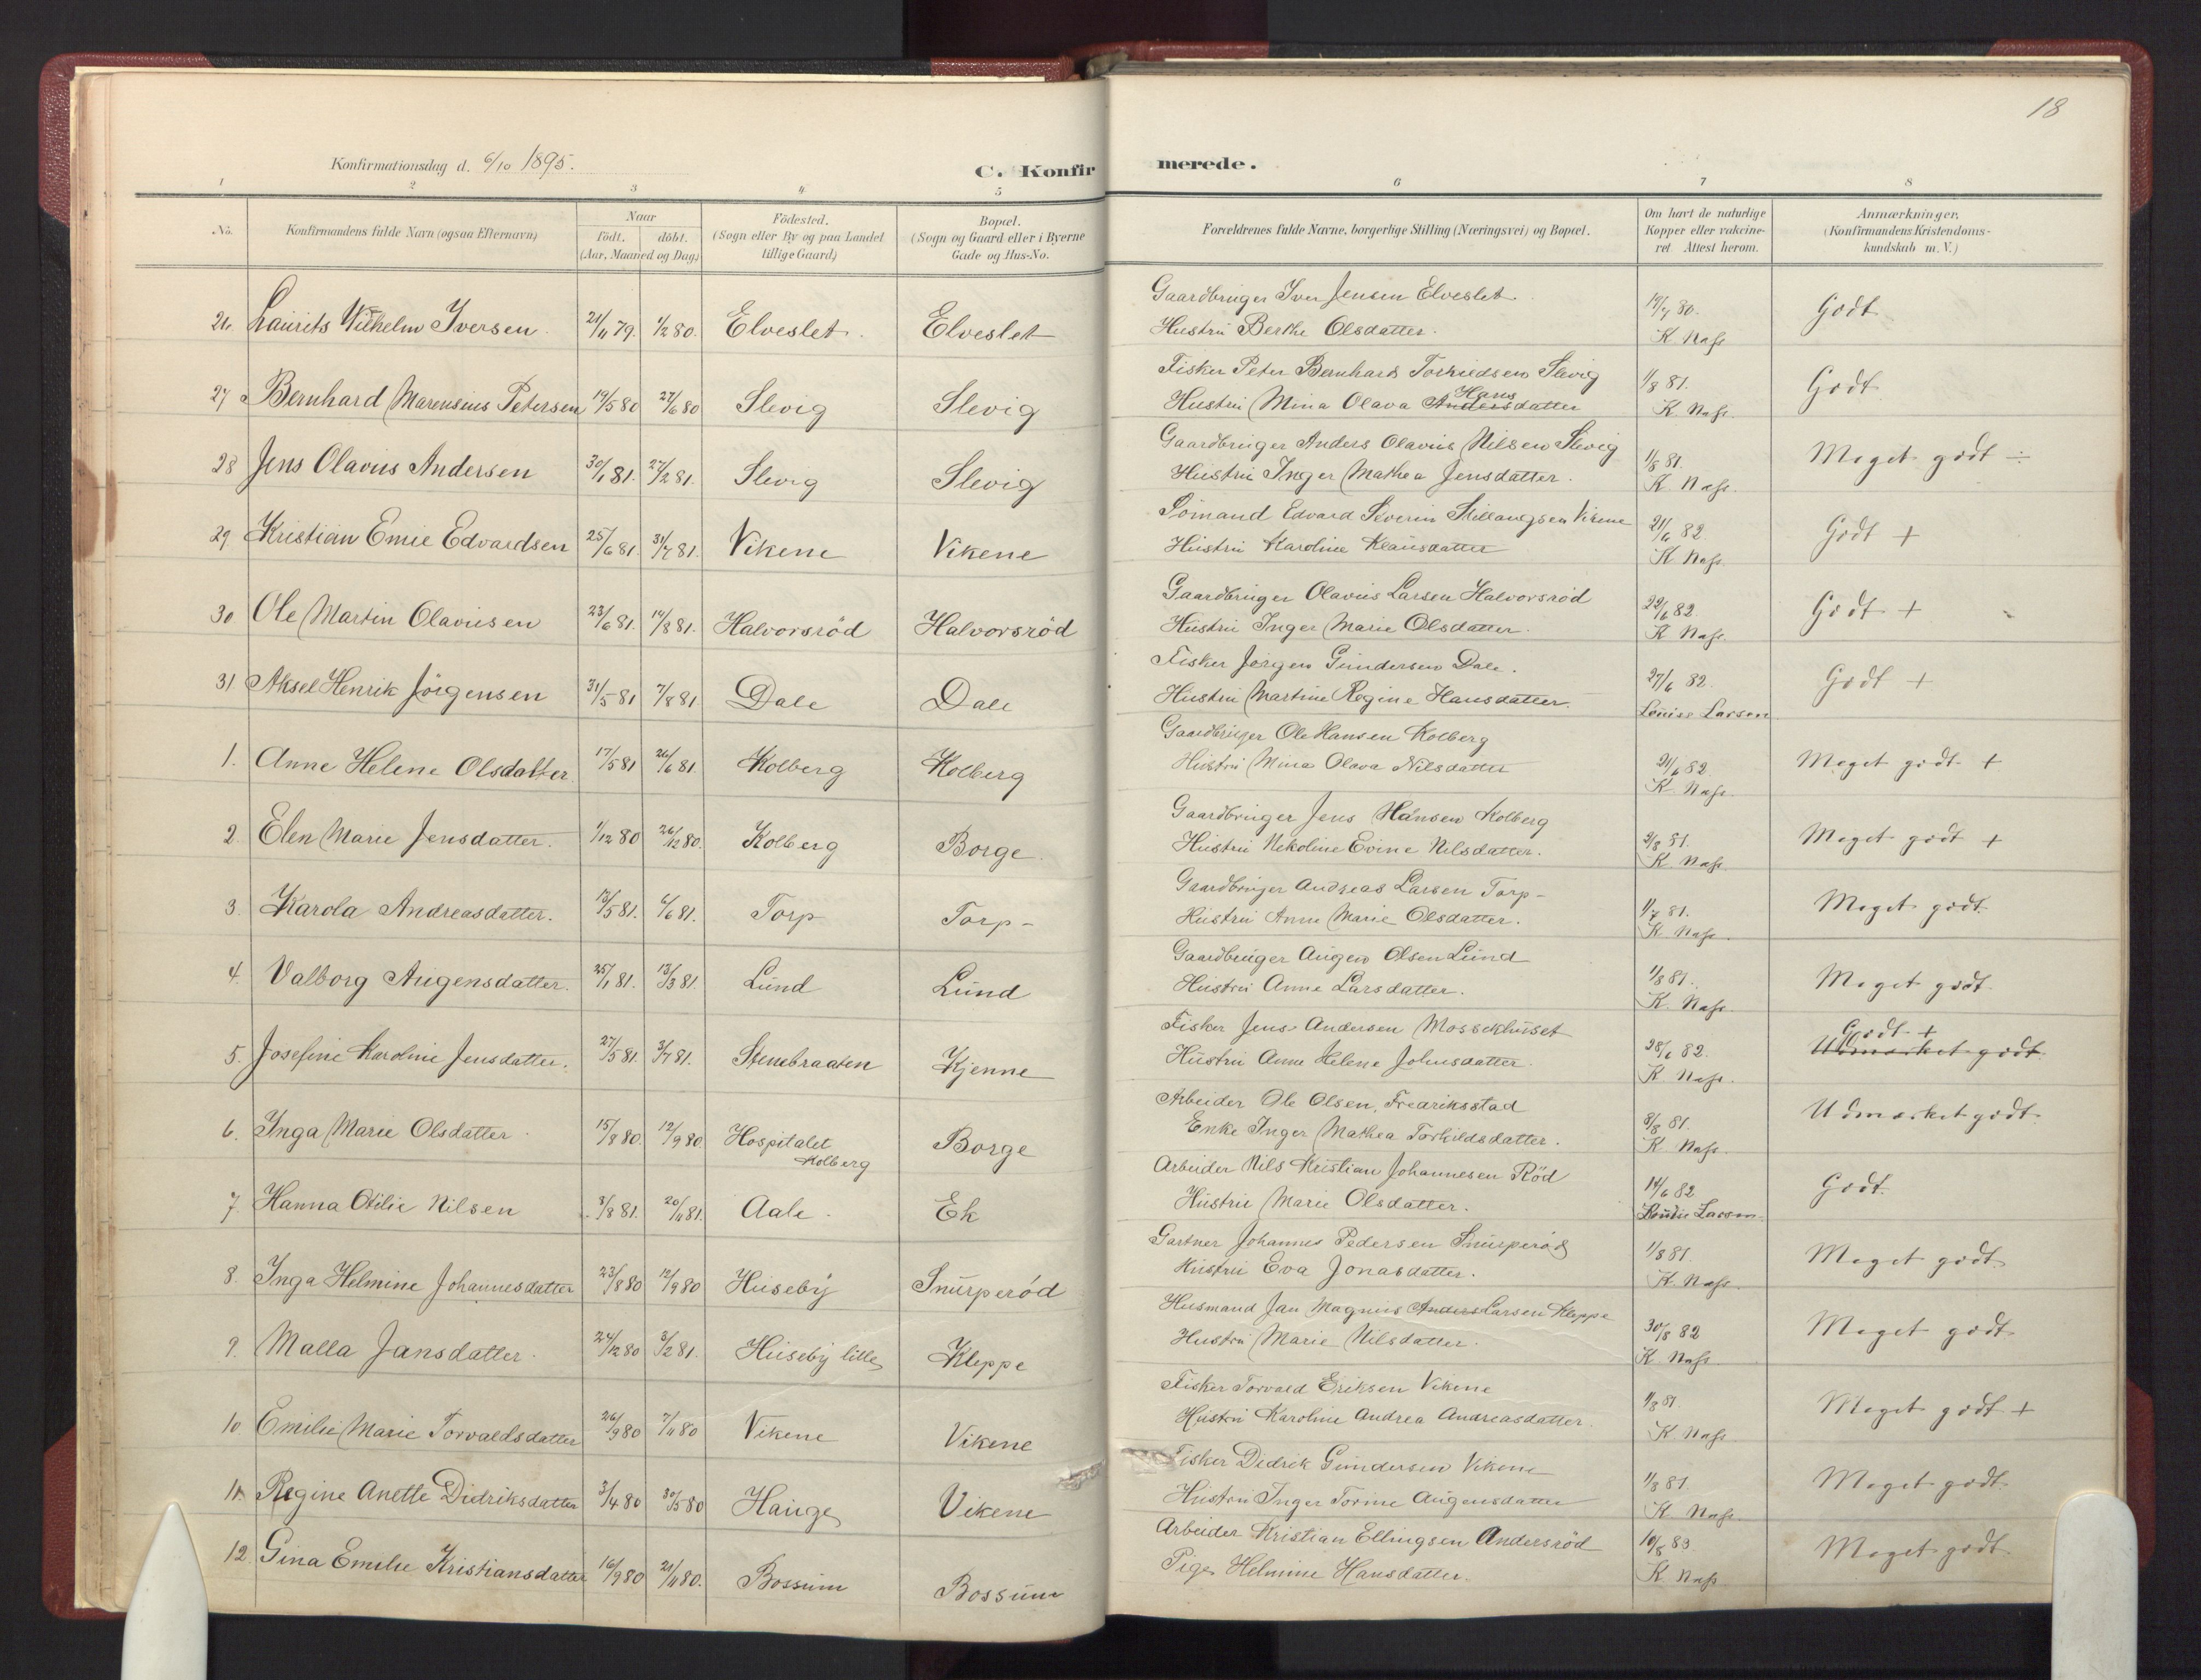 18
Konfirmationsdag d. 6/10 1895.
C. Konfirmerede.
1 2 3 4 5 6 7 8
No. Konfirmandens fulde Navn (ogsaa Efternavn) Naar födt. döbt. (Aar, Maaned og Dag) Födested. (Sogn eller By og paa Landet tillige Gaard) Bopæl. (Sogn og Gaard eller i Byerne Gade og Hus-No. Forældrenes fulde Navne, borgerlige Stilling (Næringsvei) og Bopæl. Om havt de naturlige Kopper eller vakcineret. Attest herom. Anmærkninger. (Konfirmandens Kristendomskundskab m. V.)
26. Laurits Vilhelm Iversen. 21/11 79. 1/2 80. Elveslet. Elveslet Gaardbruger Iver Jensen Elveslet. 19/7 80. Godt
Hustru Berthe Olsdatter. K. Næss
27 Bernhard Marensius Petersen 19/5 80 27/6 80 Slevig Slevig Fisker Peter Bernhard Torkildsen Slevig 1/8 81. Godt
Hustru Mina Olava Anders Hansdatter K. Næss.
28 Jens Olavus Andersen 30/1 81. 27/2 81. Slevig Slevig Gaardbruger Anders Olavus Nilsen Slevig 1/8 81. Meget godt ÷
Hustru Inger Mathea Jensdatter. K. Næss.
29 Kristian Emil Edvardsen 25/6 81. 31/7 81. Vikene Vikene Sömand Edvard Severin Stillaugsen Vikene 21/6 82 Godt +
Hustru Karoline Klausdatter K. Næss.
30 Ole Martin Olavusen 23/6 81. 14/8 81. Halvorsröd Halvorsröd Gaardbruger Olavus Larsen Halvorsröd 22/6 82. Godt +
Hustru Inger Marie Olsdatter. K Næss.
31 Aksel Henrik Jörgensen 31/5 81 7/8 81 Dale Dale Fisker Jörgen Gundersen Dale. 27/6 82. Godt +
Hustru Martine Regine Hansdatter. Louise Larsen
1. Anne Helene Olsdatter. 17/5 81 26/6 81. Kolberg Kolberg Gaardbruger Ole Hansen Kolberg 21/6 82. Meget godt +
Hustru Mina Olava Nilsdatter K. Næss.
2. Elen Marie Jensdatter. 1/12 80 26/12 80. Kolberg Borge. Gaardbruger Jens Hansen Kolberg 2/8 81. Meget godt +
Hustru Nikoline Evine Nilsdatter. K Næss.
3. Karola Andreasdatter. 12/5 81. 6/6 81. Torp Torp - Gaardbruger Andreas Larsen Torp - 1/7 81. Meget godt.
Hustru Anne Marie Olsdatter. K Næss.
4. Valborg Augensdatter. 25/1 81. 13/3 81. Lund Lund Gaardbruger Augen Olsen Lund 1/8 81. Meget godt
Hustru Anne Larsdatter. K. Næss.
5. Josefine Karoline Jensdatter. 27/5 81. 3/7 81. Stenebraaten Kjenne Fisker Jens Andersen Mossekhuset 28/6 82. Godt +
Hustru Anne Helene Johnsdatter. K Næss. Udmærket godt.
6. Inga Marie Olsdatter 15/8 80. 12/9 80 Hospitalet Kolberg Borge Arbeider Ole Olsen, Fredriksstad 8/8 81. Udmærket godt.
Enke Inger Mathea Torkildsdatter. K Næss.
7. Hanna Otilie Nilsen 3/8 81. 20/11 81. Aale. Ek Arbeider Nils Kristian Johannesen Röd 14/6 82 Godt.
Hustru Marie Olsdatter. Louise Larsen
8. Inga Helmine Johannesdatter 23/8 80 12/9 80 Huseby Snurperöd Gartner Johannes Pedersen Snurperöd 1/8 81. Meget godt
Hustru Eva Jonasdatter. K. Næss.
9. Malla Jansdatter. 24/12 80 3/2 81. Huseby lille Kleppe Husmand Jan Magnus Anders Larsen Kleppe 30/8 82 Meget godt
Hustru Marie Nilsdatter. K Næss
10 Emilie Marie Torvaldsdatter 26/9 80 7/11 80 Vikene Vikene Fisker Torvald Eriksen Vikene 1/8 81. Meget godt +
Hustru Karoline Andrea Andreasdatter. K Næss
11. Regine Anette Didriksdatter 3/4 80 30/5 80 Hauge Vikene Fisker Didrik Gundersen Vikene 1/8 81 Meget godt.
Hustru Inger Torine Augensdatter K Næss.
12. Gina Emilie Kristiansdatter 16/9 80 21/11 80. Bossum Bossum Arbeider Kristian Ellingsen Andersröd 10/8 83. Meget godt.
Pige Helmine Hansdatter. K Næss